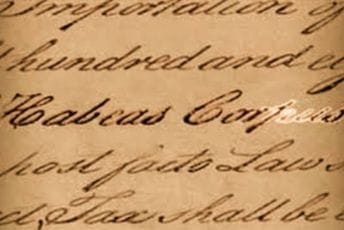 Importation of
hundred and ei
Habeas Corpus
post facto Law s
d, Tax shall be